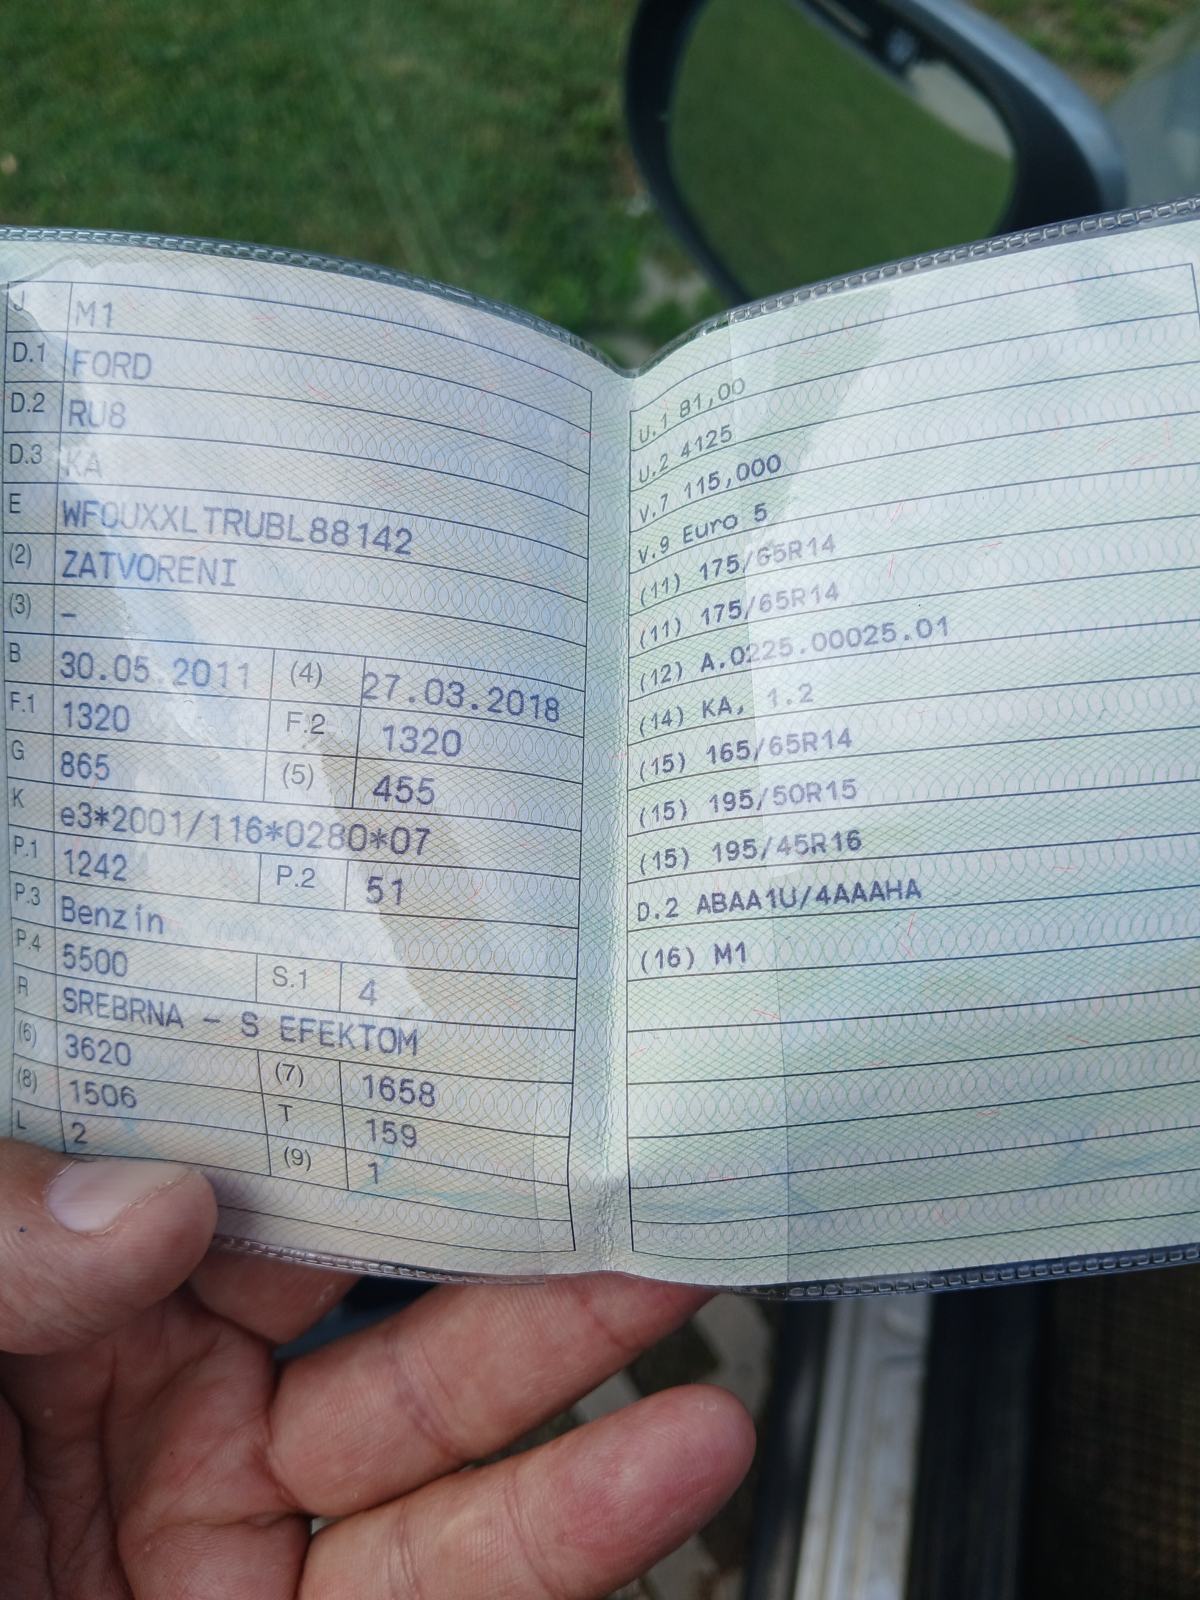 J M1
D.1 FORD
D.2 RU8
D.3 KA
E WF0UXXLTRUBL88142
(2) ZATVORENI
(3) –
B 30.05.2011 (4) 27.03.2018
F.1 1320 F.2 1320
G 865 (5) 455
K e3*2001/116*0280*07
P.1 1242 P.2 51
P.3 Benzin
P.4 5500 S.1 4
R SREBRNA – S EFEKTOM
(6) 3620 (7) 1658
(8) 1506 T 159
L 2 (9) 1
U.1 81,00
U.2 4125
V.7 115,000
V.9 Euro 5
(11) 175/65R14
(11) 175/65R14
(12) A.0225.00025.01
(14) KA, 1.2
(15) 165/65R14
(15) 195/50R15
(15) 195/45R16
D.2 ABAA1U/4AAAHA
(16) M1